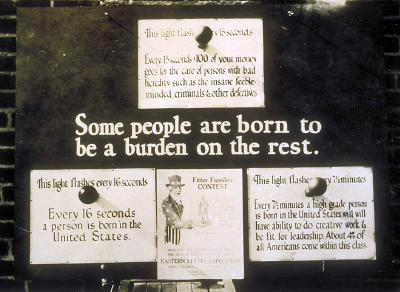 This light flashes every 15 seconds
Every 15 seconds $100 of your money
goes for the care of persons with bad
heredity such as the insane feeble
minded, criminals & other defectives
Some people are born to
be a burden on the rest.
This light flashes every 16 seconds
Every 16 seconds
a person is born in the
United States.
Fitter Families
CONTEST
EASTERN STATES EXPOSITION
This light flashes every 7½ minutes
Every 7½ minutes a high grade person
is born in the United States, will will
have ability to do creative work &
be fit for leadership. About 4% of
all Americans come within this class.